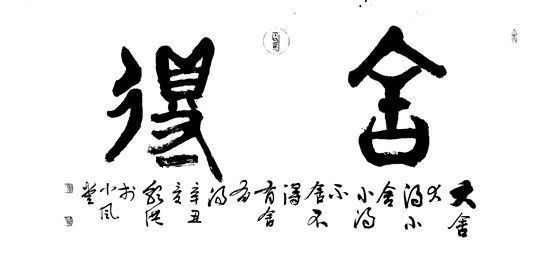 舍得
大舍大得小舍小得不舍不得有舍有得辛丑夏於小風堂